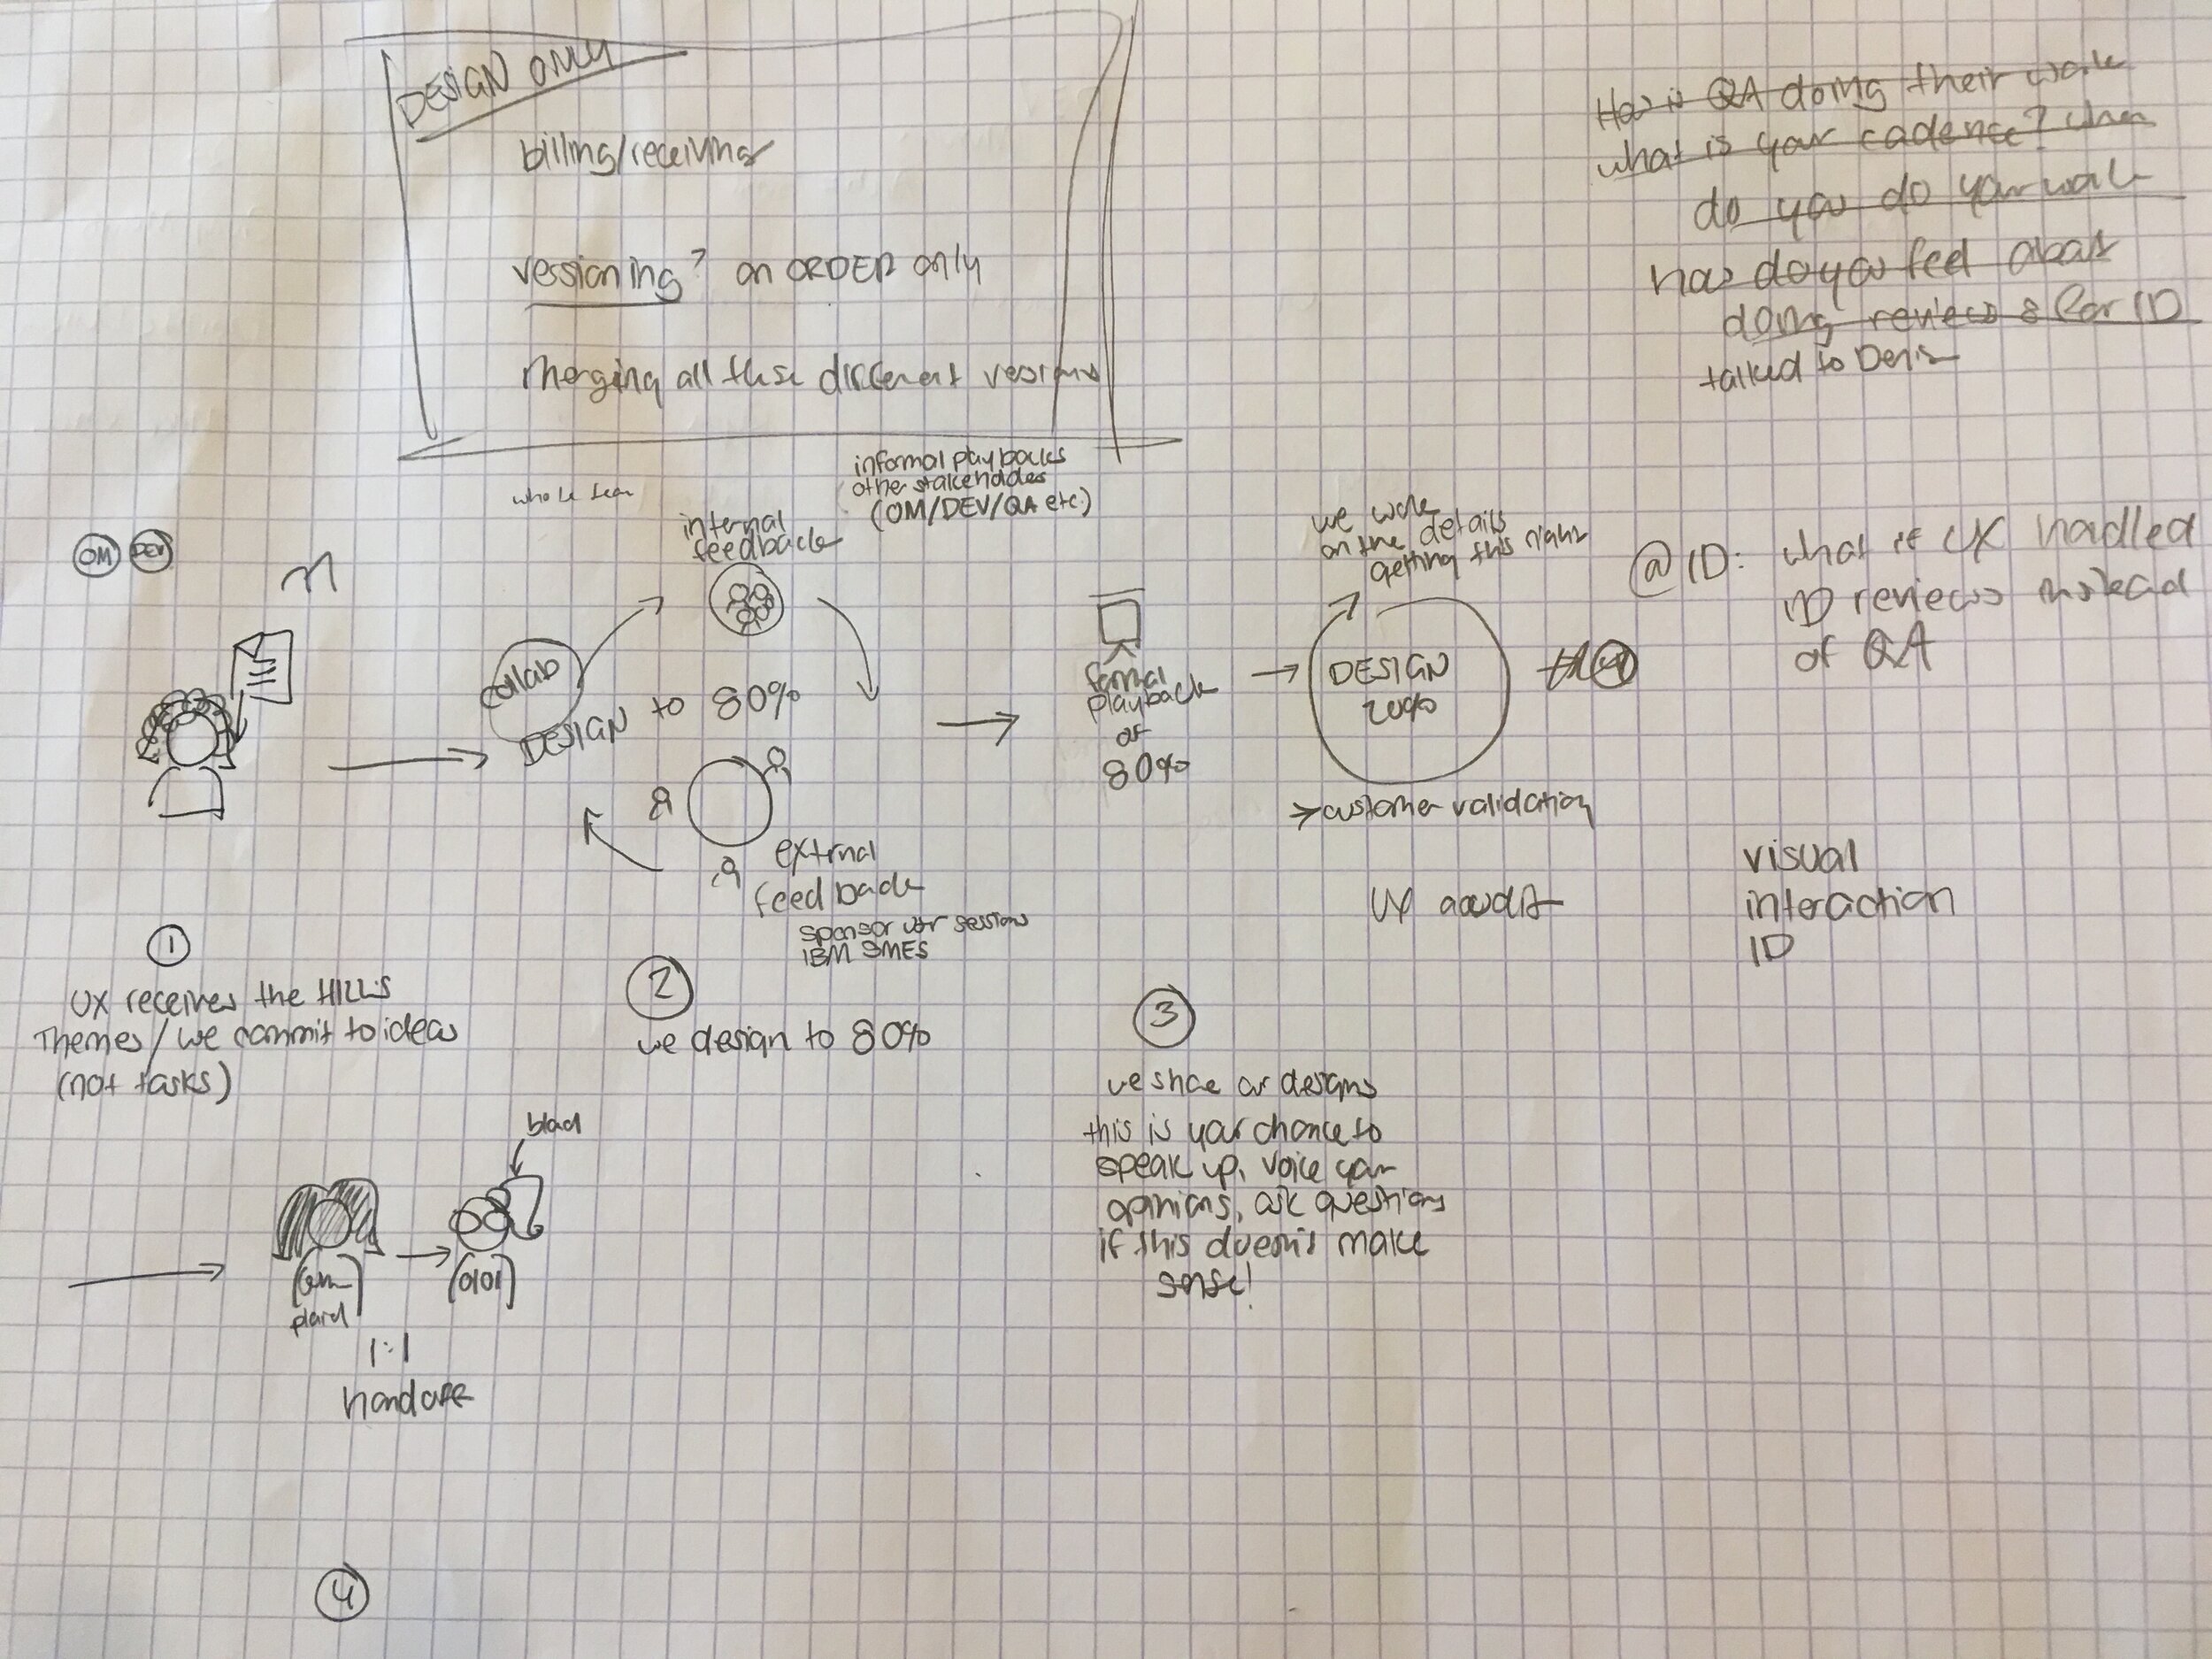 DESIGN ONLY
billing/receiving
versioning? on ORDER only
merging all these different versions
How is QA doing their work
what is your cadence? when
do you do your work
how do you feel about
doing reviews for ID
talked to Denis
whole team
informal playbacks
other stakeholders
(OM/DEV/QA etc.)
internal
feedback
OM DEV
collab
DESIGN to 80%
external
feedback
sponsor user sessions
IBM SMES
formal
playback
at
80%
we work
on the details
getting this right
DESIGN
20%
>customer validation
UX audit
@ID: what if UX handled
ID reviews instead
of QA
visual
interaction
ID
1
UX receives the HILLS
Themes/we commit to ideas
(not tasks)
2
we design to 80%
3
we share our designs
this is your chance to
speak up, voice your
opinions, ask questions
if this doesn't make
sense!
plaid
0101
1:1
handoff
4